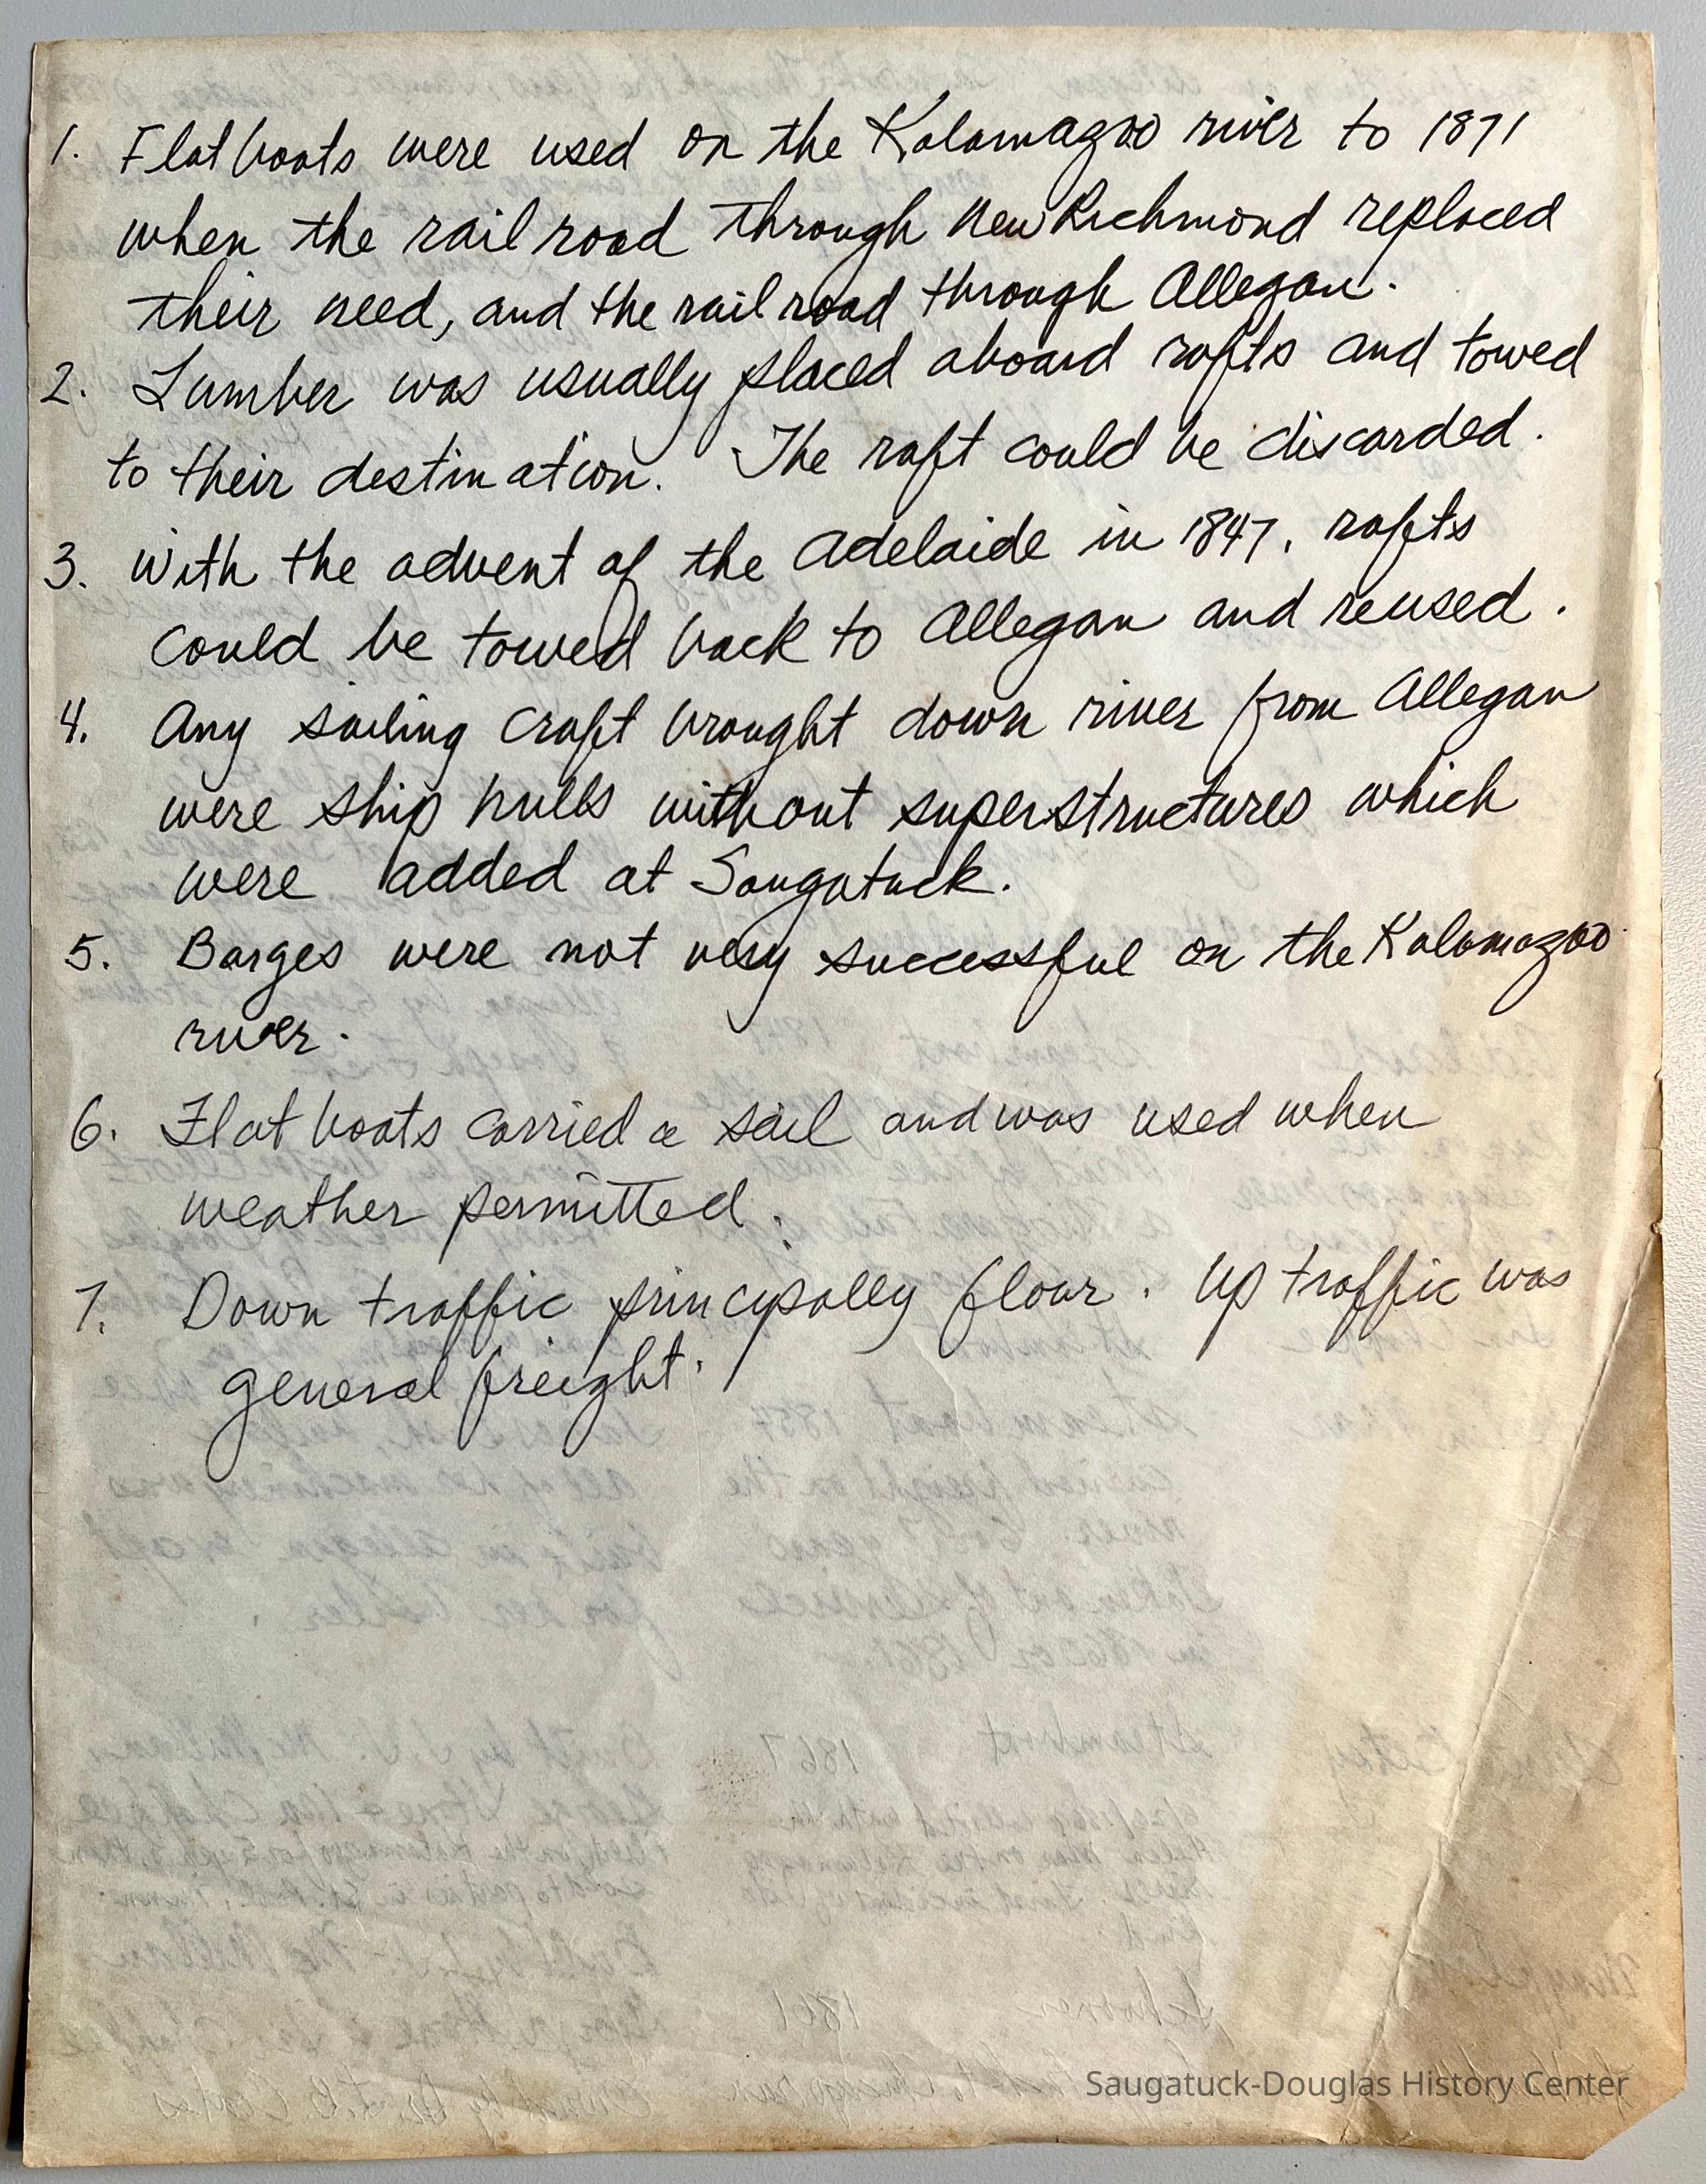 1. Flat boats were used on the Kalamazoo river to 1871
when the rail road through New Richmond replaced
their need, and the rail road through Allegan.
2. Lumber was usually placed aboard rafts and towed
to their destination. The raft could be discarded.
3. With the advent of the Adelaide in 1847, rafts
could be towed back to Allegan and reused.
4. Any sailing craft brought down river from Allegan
were ship hulls without superstructures which
were added at Saugatuck.
5. Barges were not very successful on the Kalamazoo
river.
6. Flat boats carried a sail and was used when
weather permitted.
7. Down traffic principally flour. Up traffic was
general freight.
Saugatuck-Douglas History Center